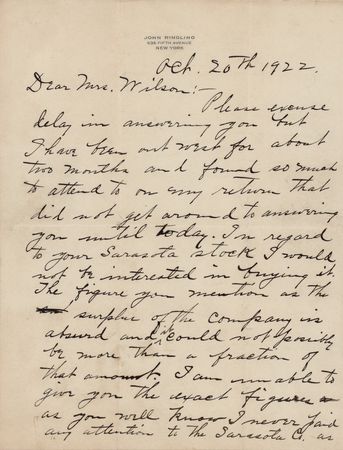 JOHN RINGLING
636 FIFTH AVENUE
NEW YORK
Oct. 20th 1922.
Dear Mrs. Wilson:-
Please excuse
delay in answering you but
I have been out west for about
two months and found so much
to attend to on my return that
did not get around to answering
you until today. In regard
to your Sarasota stock I would
not be interested in buying it.
The figure you mention as the
surplus of the company is
absurd and it could not possibly
be more than a fraction of
that amount. I am unable to
give you the exact figures
as you will know I never paid
any attention to the Sarasota Co. as